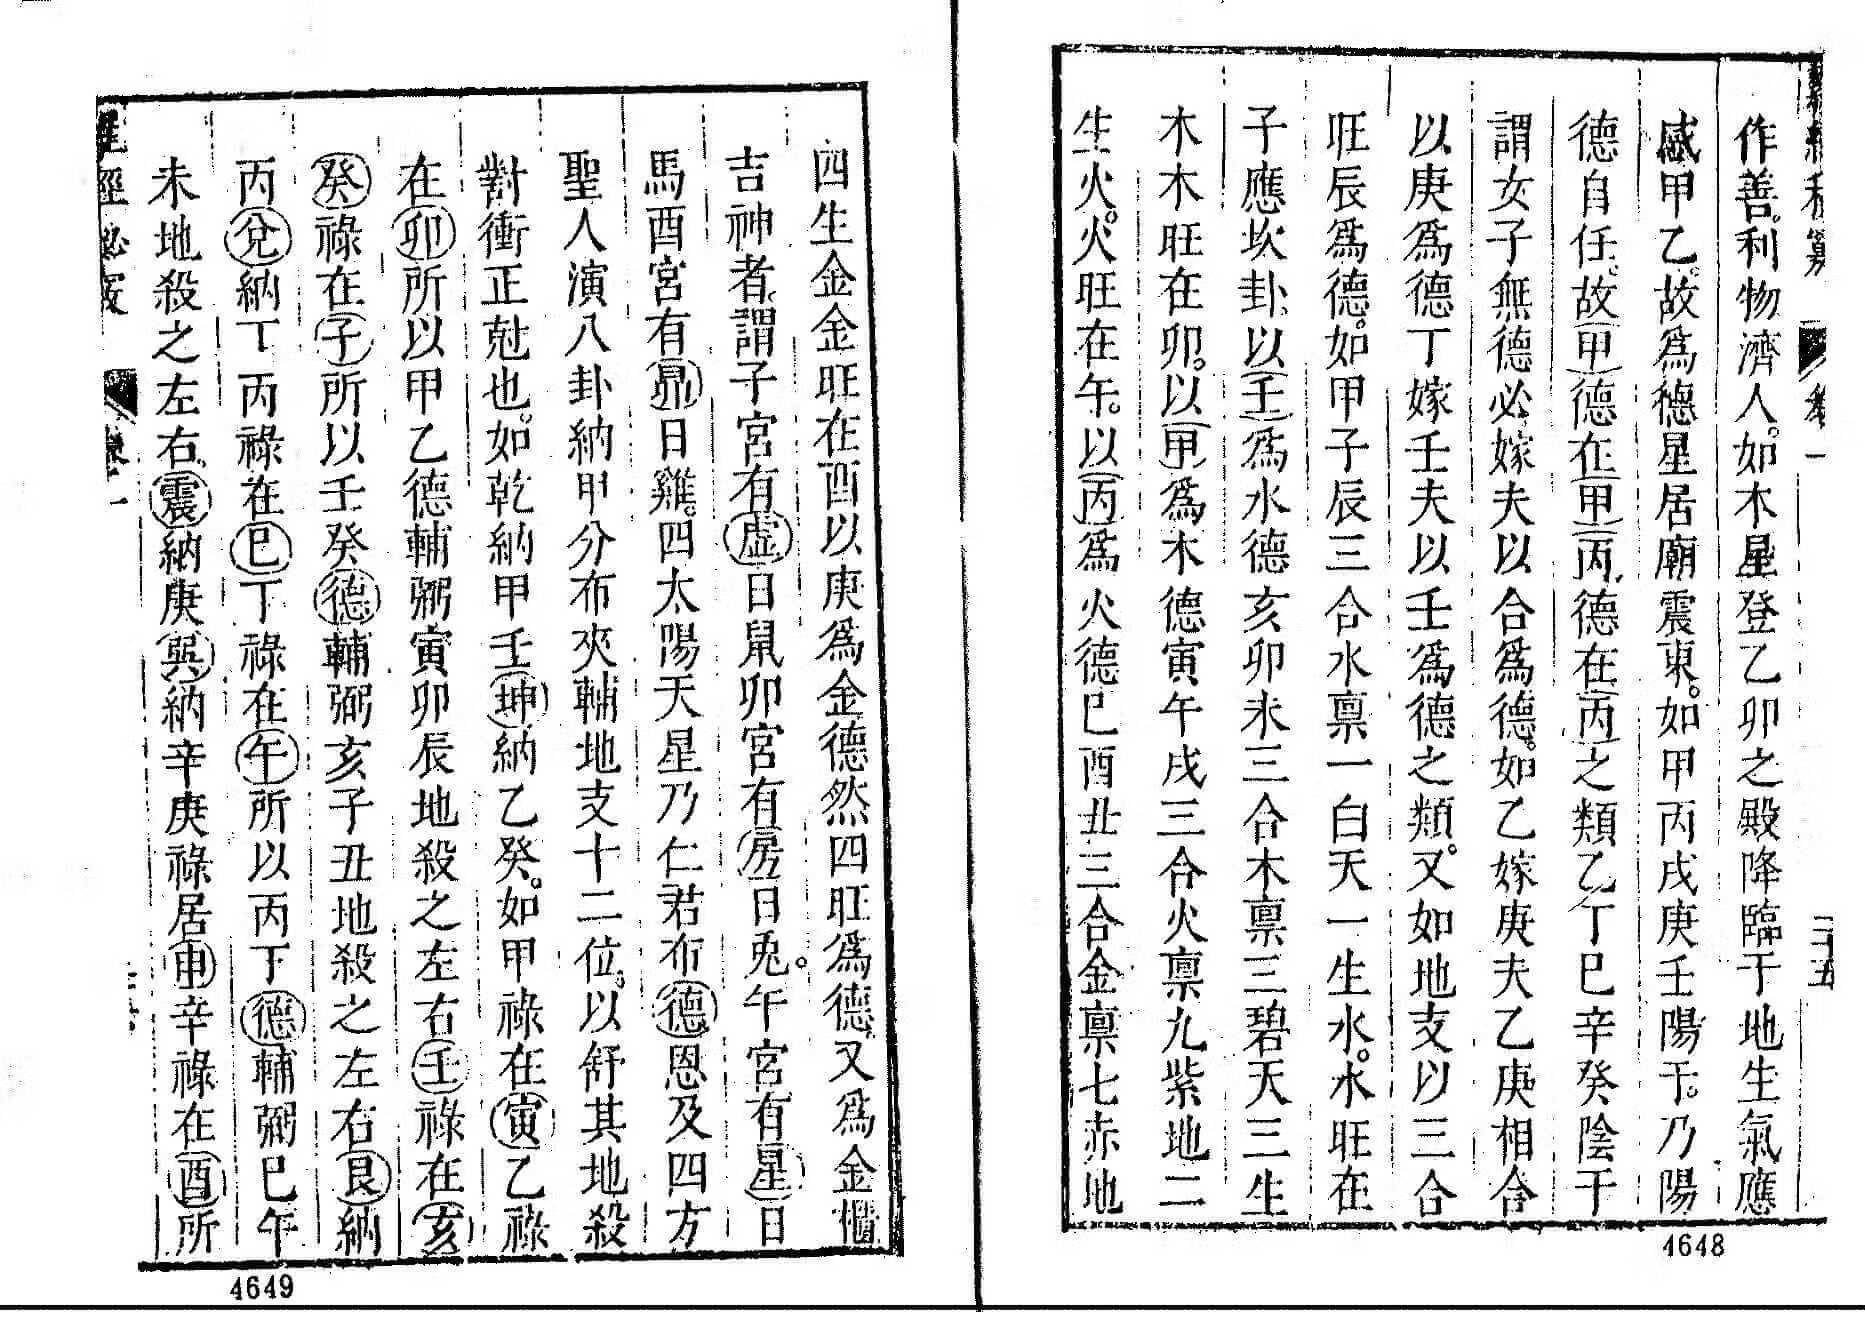 作善。利物濟人。如木星登乙卯之殿降臨于地生氣應
感甲乙。故爲德星居廟震東。如甲丙戌庚壬陽于。乃陽
德自任。故甲德在甲丙。德在丙之類乙丁巳辛癸陰于
謂女子無德必嫁夫以合爲德。如乙嫁庚夫乙庚相合
以庚爲德丁嫁壬夫以壬爲德之類。又如地支以三合
旺辰爲德。如甲子辰三合水禀一白天一生水。水旺在
子應坎卦以壬爲水德亥卯未三合木禀三碧天三生
木木旺在卯。以甲爲木德寅午戌三合火禀九紫地二
生火。火旺在午。以丙爲火德巳酉丑三合金禀七赤地
二十五
4648
四生金金旺在酉以庚爲金德然四旺爲德又爲金櫃
吉神者。謂子宮有虛日鼠卯宮有房日兎。午宮有星日
馬酉宮有昴日雞。四太陽天星乃仁君布德恩及四方
聖人演八卦納甲分布夾輔地支十二位。以舒其地殺
對衝正尅也。如乾納甲壬坤納乙癸。如甲祿在寅乙祿
在卯所以甲乙德輔弼寅卯辰地殺之左右壬祿在亥
癸祿在子所以壬癸德輔弼亥子丑地殺之左右艮納
丙兌納丁丙祿在巳丁祿在午所以丙丁德輔弼巳午
未地殺之左右震納庚巽納辛庚祿居申辛祿在酉所
4649